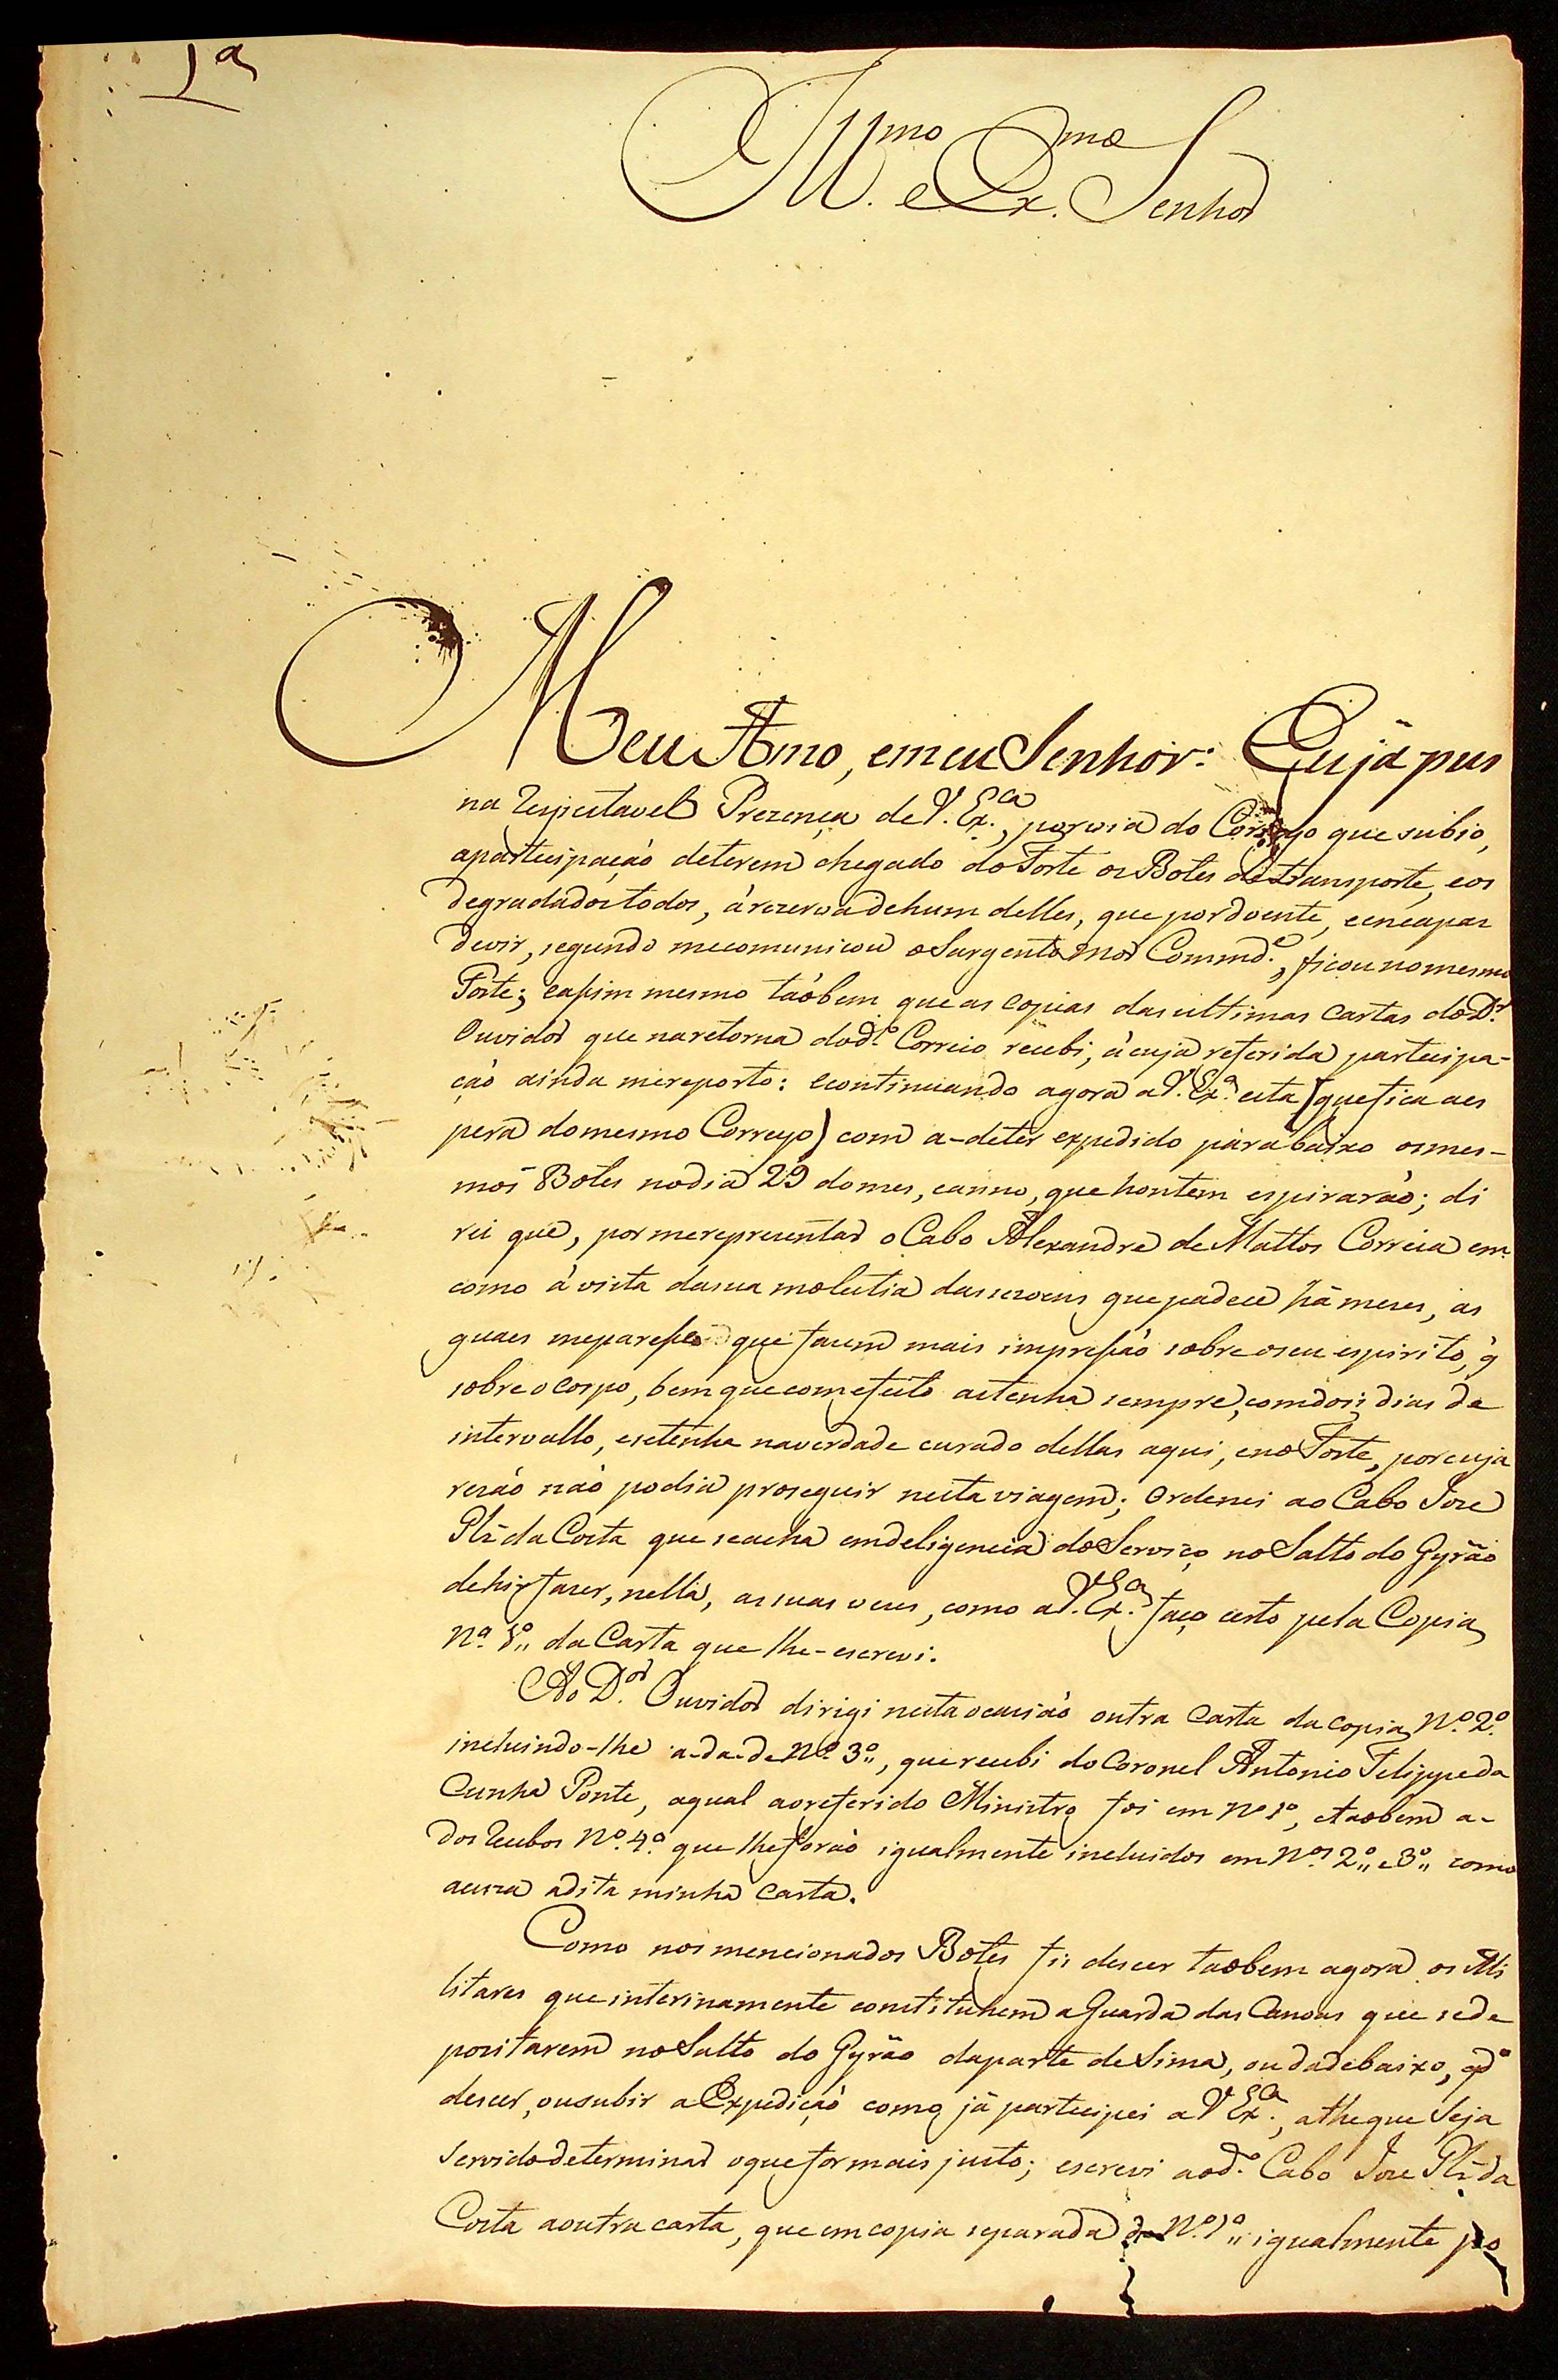 1ª
Ill.mo e Ex.mo Senhor
Meu Amo, emeu Senhor: Eu já pus
na respeitavel Prezença de V. Ex.ca, por via do Correyo que subio,
aparteicipação deterem chegado do Forte os Botes de transporte, eos
degradados todos, árezerva dehum delles, que por doente, eencapas
devir, segundo mecomunicou o Sargento mor Commd.e, ficou no mesmo
Forte; eassim mesmo taõbem que as copias das ultimas cartas do D.r
Ouvidor que naretorna dod.o Correio recebi, ácuja referida parteicipa-
çaõ ainda mereporto: econtinuando agora a V. Ex.a esta (que fica aes
pera domesmo Correyo) com a-deter expedido para baixo osmes-
mos Botes nodia 29 domes, eanno, que hontem espiraraõ; di
rei que, por merepresentar o Cabo Alexandre de Mattos Correia em
como á vista dasua molestia dassezoens que padece há mezes, as
quaes meparesse que fazem mais impressaõ sobre oseu espirito, q̃
sobre o corpo, bem que com efeito astenha sempre, com dois dias de
intervallo, esetenha naverdade curado dellas aqui, eno Forte, por cuja
rezaõ naõ podia proseguir nesta viagem; Ordenei ao Cabo Joze
Plz̃ da Costa que seacha emdeligencia do Serviço no Salto do Gyrão
dehir fazer, nella, as suas vezes, como a V. Ex.a faço certo pela Copia
N.o 1.o da Carta que lhe-escrevi.
Ao D.or Ouvidor dirigi nesta ocaziaõ outra Carta da copia N.o 2.o
incluindo-lhe a-da-de N.o 3.o, que recebi do Coronel Antonio Felippe da
Cunha Ponte, aqual aoreferido Ministro foi em N.o 1.o, etaobem a-
dos recibos N.o 4.o que lheforaõ igualmente incluidos em N.os 2.o e 3.o como
acuza adita minha Carta.
Como nos mencionados Botes fis descer taobem agora os Mi
litares que interinamente constituhem a Guarda das Canoas que sede
pozitarem no Salto do Gyrão daparte de Sima, ou dadebaixo, qd.o
descer, ousubir a Expediçaõ como já parteicipei a V Ex.ca, athe que Seja
Servido determinar oque for mais justo; escrevi aod.o Cabo Joze Plz̃ da
Costa aoutra carta, que em copia separada de N.o 1.o igualmente po